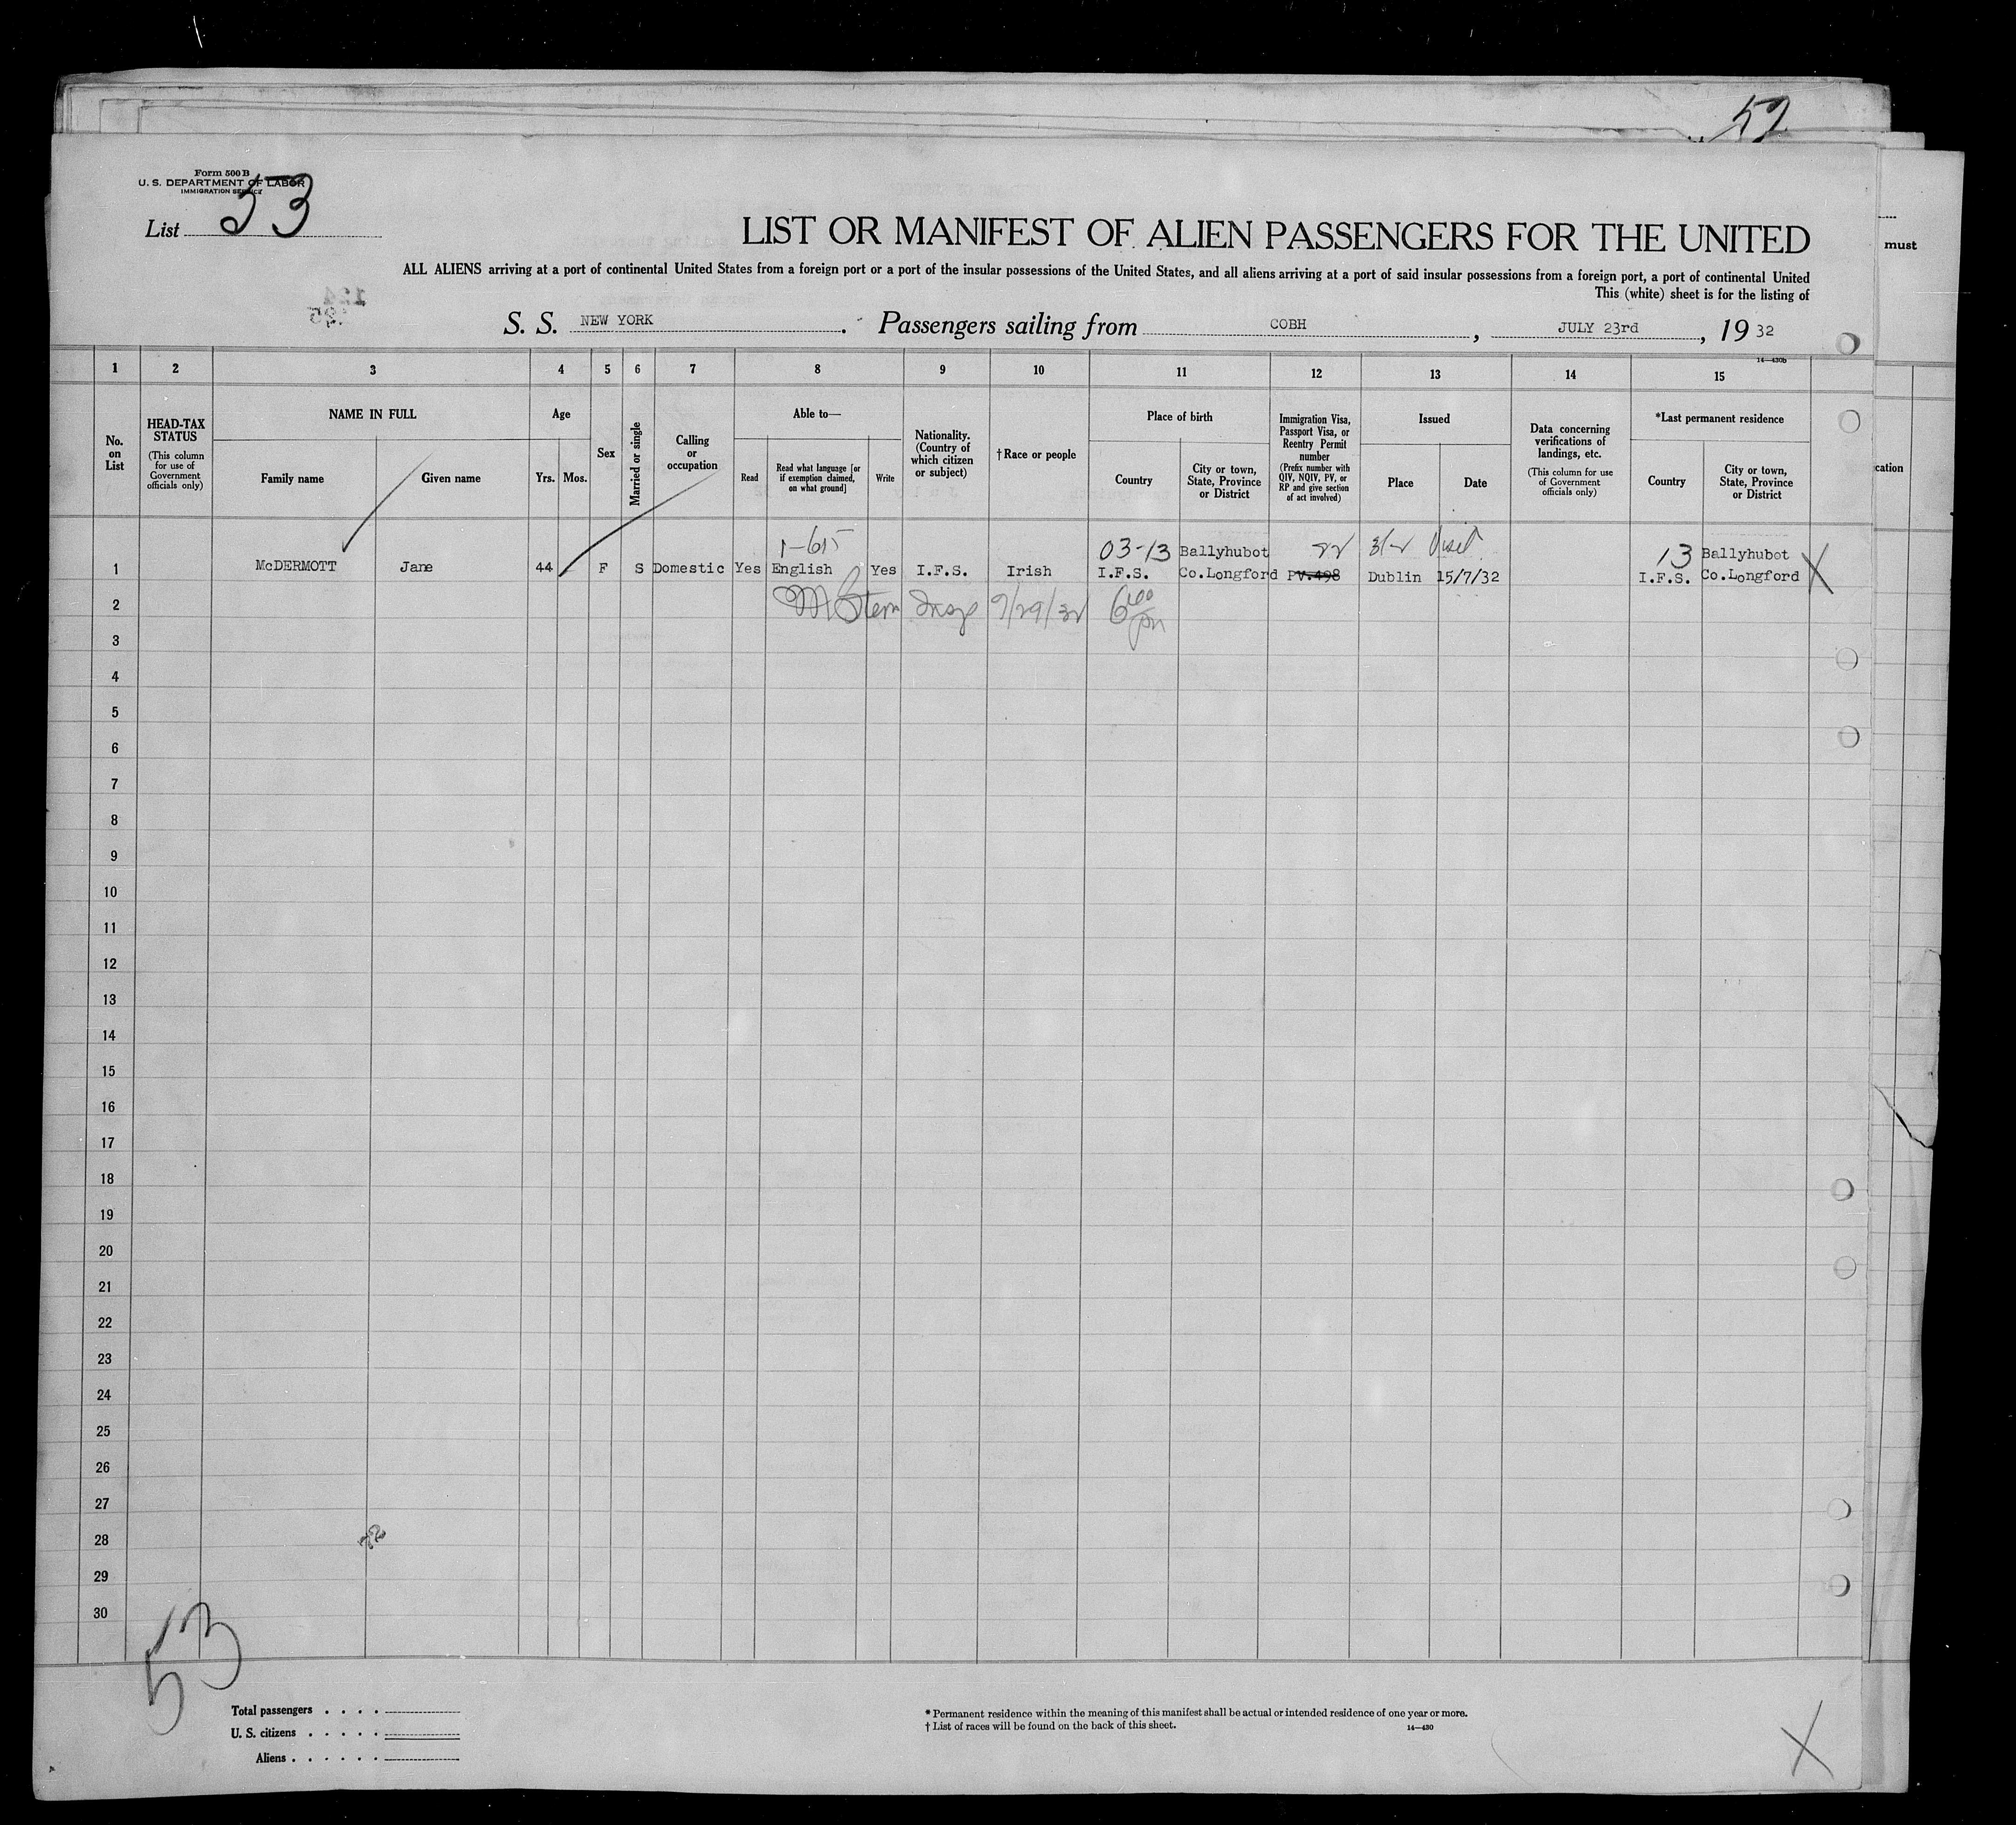 52
Form 500 B
U. S. DEPARTMENT OF LABOR
IMMIGRATION SERVICE
List 53
LIST OR MANIFEST OF ALIEN PASSENGERS FOR THE UNITED
must
ALL ALIENS arriving at a port of continental United States from a foreign port or a port of the insular possessions of the United States, and all aliens arriving at a port of said insular possessions from a foreign port, a port of continental United
This (white) sheet is for the listing of
S. S. NEW YORK. Passengers sailing from COBH, JULY 23rd, 19 32
14—430b
1 2 3 4 5 6 7 8 9 10 11 12 13 14 15
No. on List
HEAD-TAX STATUS
(This column for use of Government officials only)
NAME IN FULL
Family name
Given name
Age
Yrs. Mos.
Sex
Married or single
Calling or occupation
Able to—
Read
Read what language [or if exemption claimed, on what ground]
Write
Nationality. (Country of which citizen or subject)
†Race or people
Place of birth
Country
City or town, State, Province or District
Immigration Visa, Passport Visa, or Reentry Permit number
(Prefix number with QIV, NQIV, PV, or RP and give section of act involved)
Issued
Place
Date
Data concerning verifications of landings, etc.
(This column for use of Government officials only)
*Last permanent residence
Country
City or town, State, Province or District
cation
1-615 03-13 Ballyhubot 3/2 Visit 13 Ballyhubot
1 McDERMOTT Jane 44 F S Domestic Yes English Yes I.F.S. Irish I.F.S. Co.Longford PV.498 Dublin 15/7/32 I.F.S. Co.Longford X
2 M Stern Insp 600 pm
3
4
5
6
7
8
9
10
11
12
13
14
15
16
17
18
19
20
21
22
23
24
25
26
27
28
29
30
53
Total passengers
U. S. citizens
Aliens
* Permanent residence within the meaning of this manifest shall be actual or intended residence of one year or more.
† List of races will be found on the back of this sheet.
14—430
X